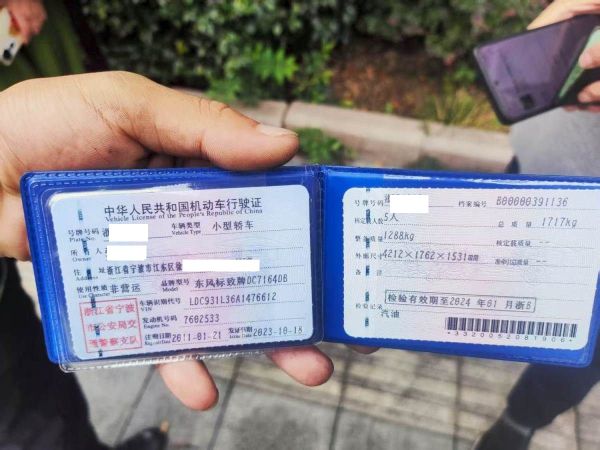 中华人民共和国机动车行驶证
Vehicle License of the People's Republic of China
号牌号码 浙
Plate No.
车辆类型 小型轿车
Vehicle Type
所有人
住址 浙江省宁波市江东区
使用性质 非营运
Use Character
品牌型号 东风标致牌DC7164DB
Model
浙江省宁波
市公安局交
通警察支队
车辆识别代号 LDC931L36A1476612
VIN
发动机号码 7602533
Engine No.
注册日期 2011-01-21
Register Date
发证日期 2023-10-18
Issue Date
号牌号码 浙
档案编号 B00000391136
核定载人数 5人
总质量 1717kg
整备质量 1288kg
核定载质量 --
外廓尺寸 4212×1762×1531mm
准牵引总质量 --
备注
检验记录
检验有效期至2024年01月浙B
汽油
*3320052081906*